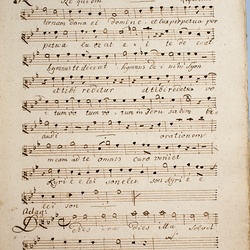 Requiem
ternam dona eis domine et lux perpetua per
petua luceat e i s te de cet
hymnus te decet hymnus deus in Sion
et tibi redetur et tibi redetur vo
tum votum votum in Jerusalem
orationem
meam ad te omnis caro veniet
Kyrie e lei son elei son Kyrie e
lei son
Adag:
dies irae dies illa solvet